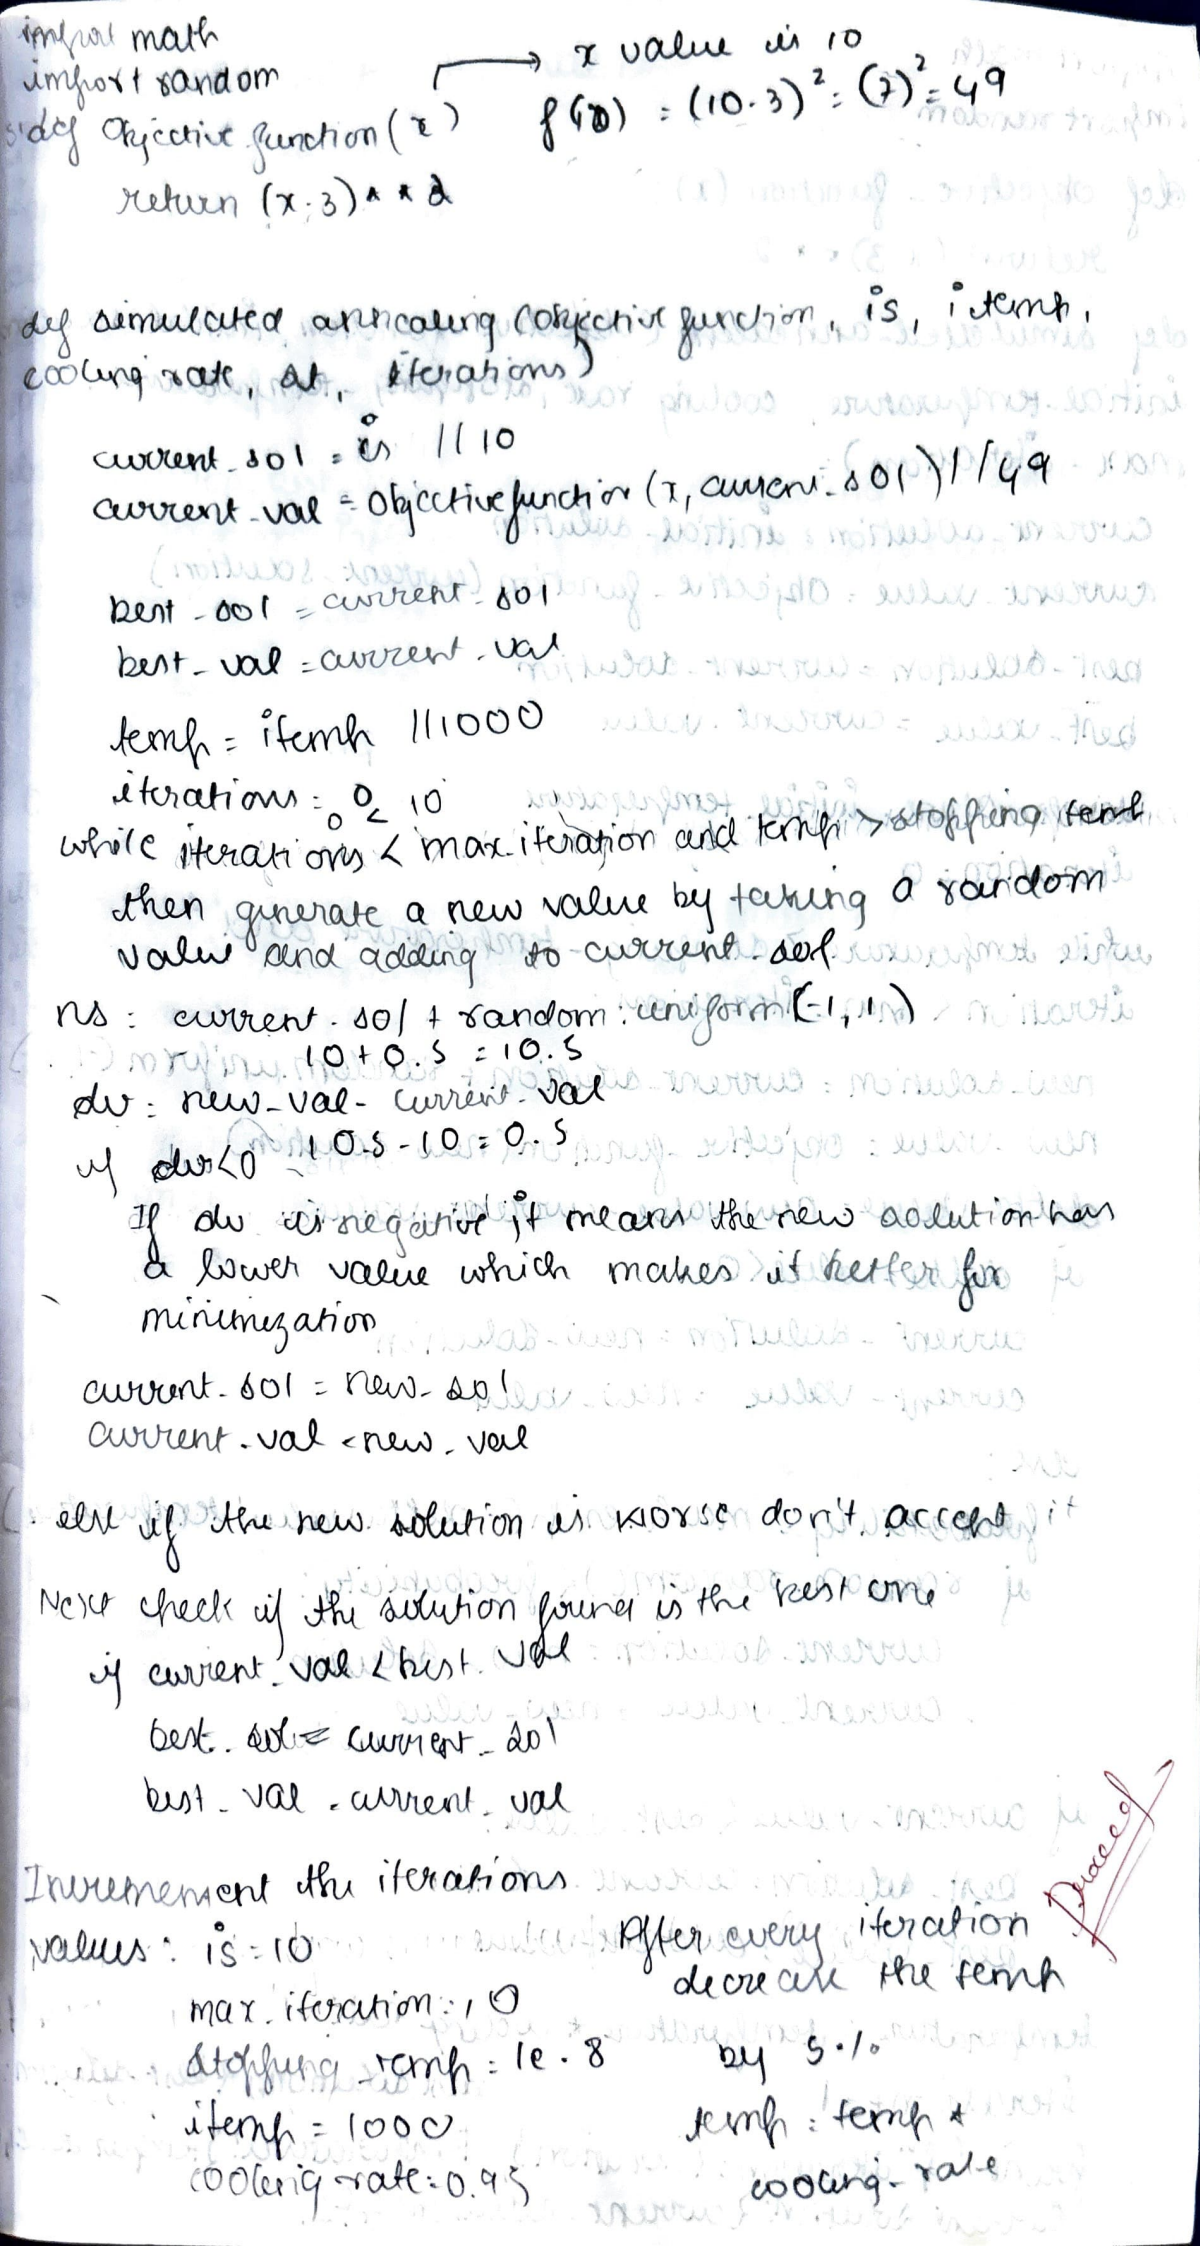 import math
import random
→ x value is 10
def Objective function (x)
f(10) = (10-3)² = (7)² = 49
return (x-3)**2
def simulated annealing (objective function, is, itemp,
cooling rate, st, iterations)
current-sol = is //10
current-val = Objectivefunction (x, current-sol) //49
best-sol = current-sol
best-val = current-val
temp = itemp //1000
iterations = 0
0 < 10
while iterations < max-iteration and temp > stopping temp
then generate a new value by taking a random
value and adding to current-sol
ns = current-sol + random.uniform(-1, 1)
10+0.5 = 10.5
dv = new-val - current-val
10.5-10 = 0.5
if dv<0
If dv is negative, it means the new solution has
a lower value which makes it better for
minimization
current-sol = new-sol
current-val = new-val
else if the new solution is worse don't accept it
Next check if the solution found is the best one
if current-val < best-val
best-sol = current-sol
best-val = current-val
Increment the iterations
values: is = 10
max-iteration = 10
stopping temp = 1e-8
itemp = 1000
cooling-rate = 0.95
After every iteration
decrease the temp
by 5%
temp = temp *
cooling-rate